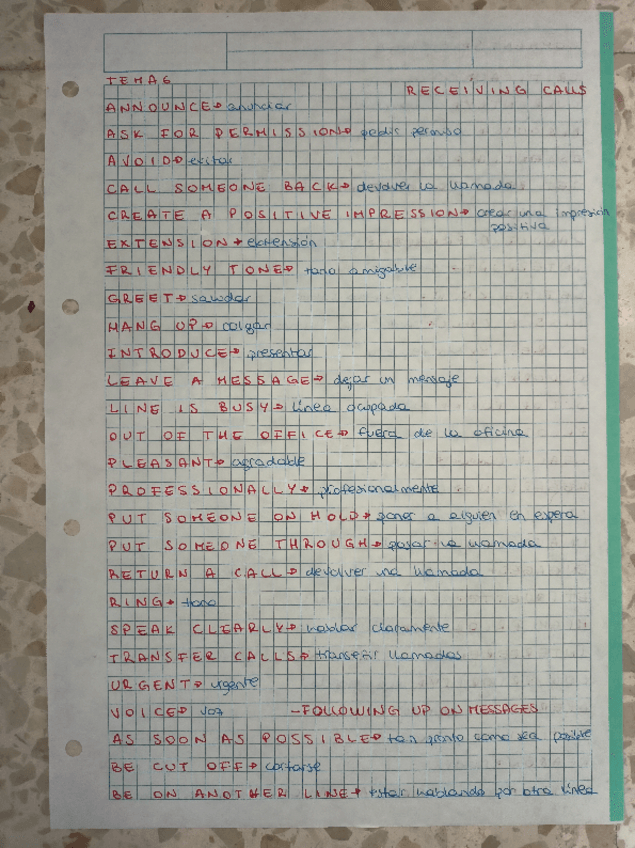 TEMA 6
RECEIVING CALLS
ANNOUNCE→ anunciar
ASK FOR PERMISSION→ pedir permiso
AVOID→ evitar
CALL SOMEONE BACK→ devolver la llamada
CREATE A POSITIVE IMPRESSION→ crear una impresión
positiva
EXTENSION→ extensión
FRIENDLY TONE→ tono amigable
GREET→ saludar
HANG UP→ colgar
INTRODUCE→ presentar
LEAVE A MESSAGE→ dejar un mensaje
LINE IS BUSY→ línea ocupada
OUT OF THE OFFICE→ fuera de la oficina
PLEASANT→ agradable
PROFESSIONALLY→ profesionalmente
PUT SOMEONE ON HOLD→ poner a alguien en espera
PUT SOMEONE THROUGH→ pasar la llamada
RETURN A CALL→ devolver una llamada
RING→ tono
SPEAK CLEARLY→ hablar claramente
TRANSFER CALLS→ llamadas
URGENT→ urgente
VOICE→ voz -FOLLOWING UP ON MESSAGES
AS SOON AS POSSIBLE→ tan pronto como sea posible
BE CUT OFF→ cortarse
BE ON ANOTHER LINE→ estar hablando por otra línea